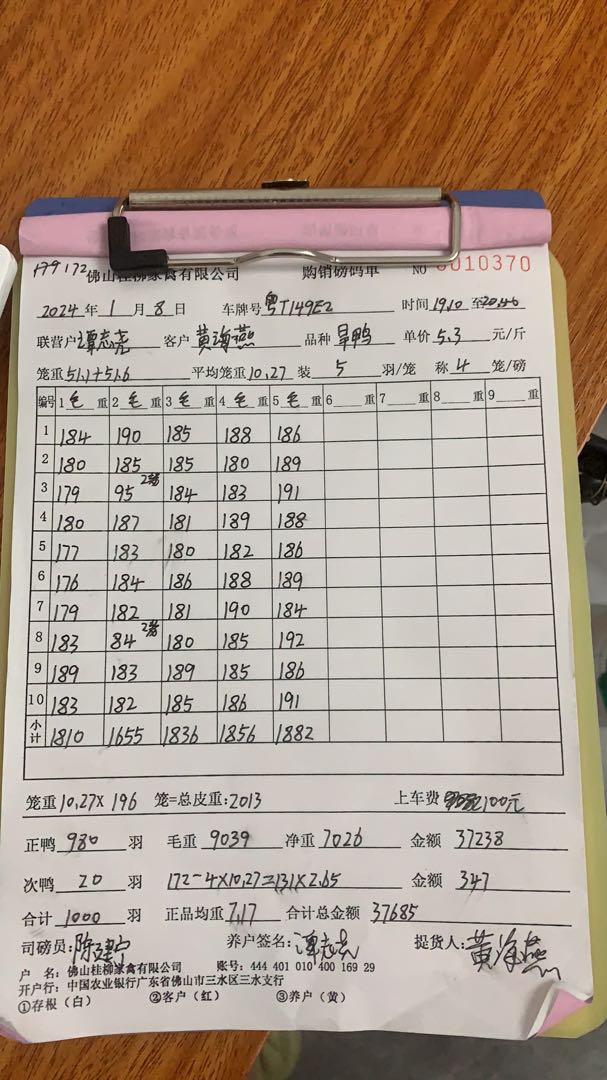 179 172
佛山桂柳家禽有限公司 购销磅码单 NO 0010370
2024年 1 月 8 日 车牌号 粤T149E2 时间 1910 至 20.46
联营户 谭志尧 客户 黄海燕 品种 旱鸭 单价 5.3 元/斤
笼重 51.1+51.6 平均笼重 10.27 装 5 羽/笼 称 4 笼/磅
编号 1 毛 重 2 毛 重 3 毛 重 4 毛 重 5 毛 重 6 重 7 重 8 重 9 重
1 184 190 185 188 186
2 180 185 185 180 189
3 179 95 2笼 184 183 191
4 180 187 181 189 188
5 177 183 180 182 186
6 176 184 186 188 189
7 179 182 181 190 184
8 183 84 2笼 180 185 192
9 189 183 189 185 186
10 183 182 185 186 191
小计 1810 1655 1836 1856 1882
笼重 10.27 X 196 笼=总皮重: 2013 上车费 100元
正鸭 980 羽 毛重 9039 净重 7026 金额 37238
次鸭 20 羽 172-4×10.27=131×2.65 金额 347
合计 1000 羽 正品均重 7.17 合计总金额 37685
司磅员: 陈建宁 养户签名: 谭志尧 提货人: 黄海燕
户 名: 佛山桂柳家禽有限公司 账号: 444 401 010 400 169 29
开户行: 中国农业银行广东省佛山市三水区三水支行
①存根（白） ②客户（红） ③养户（黄）